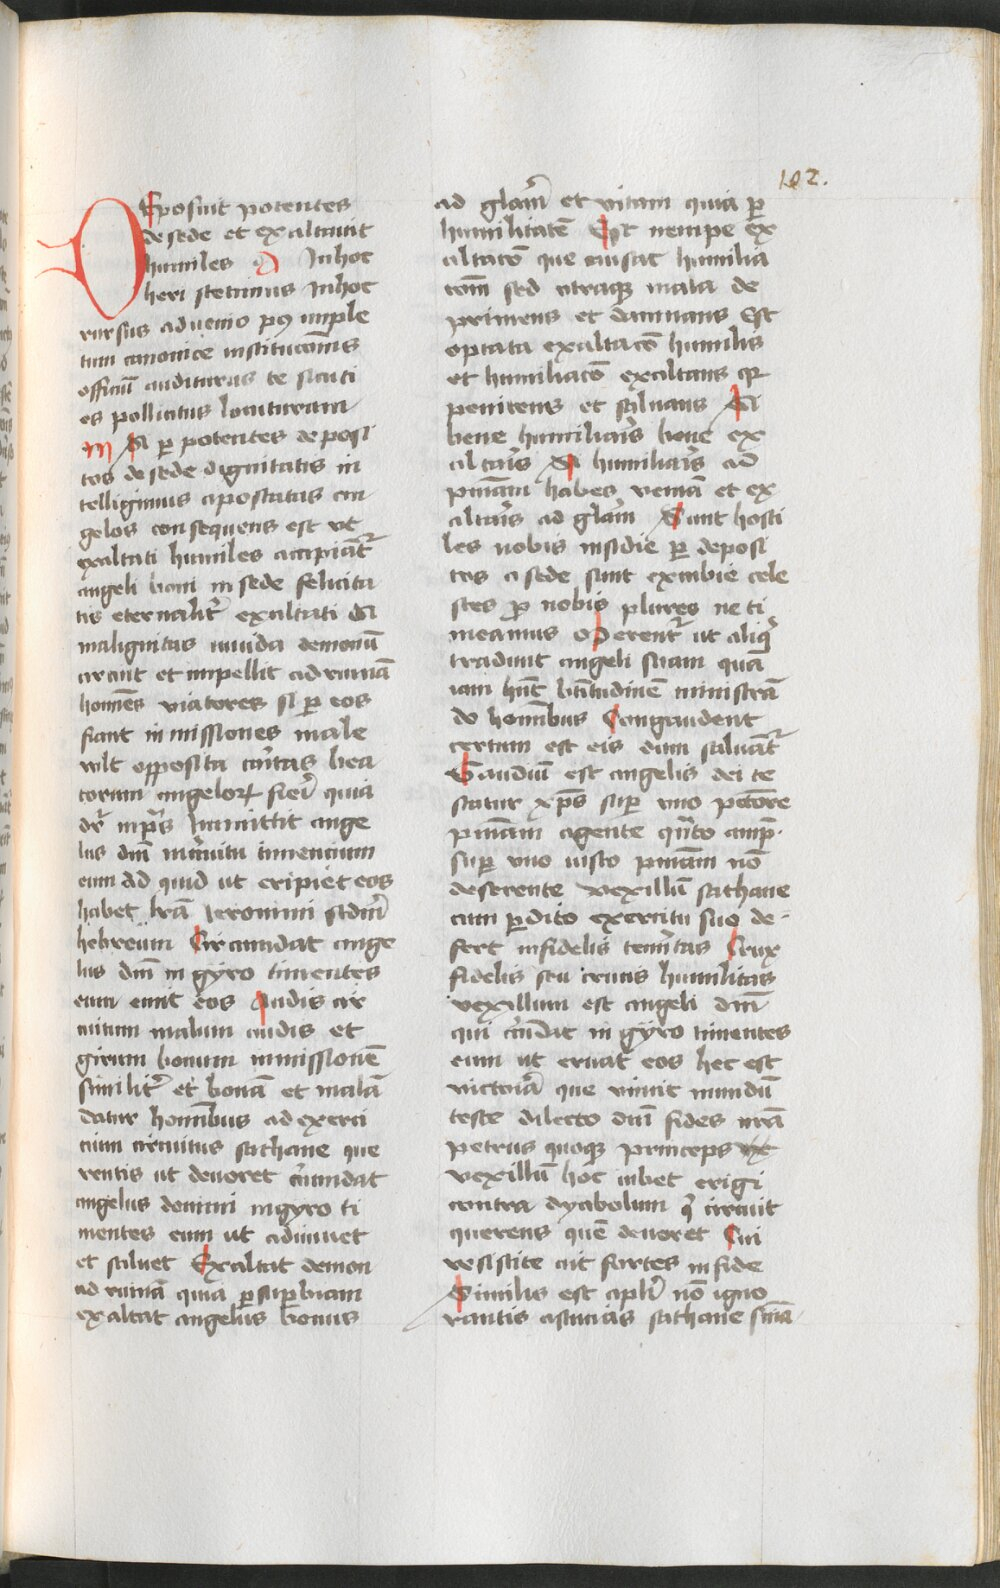 102.
DEposuit potentes
de sede et exaltauit
humiles D In hoc
heri stetimus In hoc
rursus aduenio p9 imple
tum canonice institucōnis
officiū auditurus te sicuti
es pollicitus locuturam
M Si ꝑ potentes deposi
tos de sede dignitatis in
telligimus apostatas an
gelos consequens est vt
exaltati humiles accipiāt᷑
angeli boni in sede felicita
tis eternalit᷑ exaltati Si
malignitas inuida demonū
circuit et impellit ad ruinā
homīes viatores si ꝑ eos
fiant inmissiones male
vult opposita cāritas bea
torum angeloꝝ fieri quia
dr̄ in ps̄ Inmittit ange
lus dn̄i in circuitu timencium
eum Ad quid ut eripiet eos
habet lr̄a Ieronimi scdm̄
hebreum Circumdat ange
lus dn̄i in gyro timentes
eum eruit eos Audis cir
cuitum malum audis et
girum bonum inmissionē
similit᷑ et bonā et malā
datur hominibus ad exerci
cium circuitus sathane que
rentis ut deuoret circumdat
angelus domini in gyro ti
mentes eum ut adiuuet
et saluet Exaltat demon
ad ruinā quia ꝑ superbiam
exaltat angelus bonus
ad glam̄ et vitam quia ꝑ
humilitatē Est nempe ex
altacō que causat humilia
com̄ sed utraqꝫ mala de
primens et damnans Est
optata exaltacō humilis
et humiliacō exaltans qꝛ
penitens et saluans Si
bene humiliaris bene ex
altaris Si humiliaris ad
pn̄iam habes veniā et ex
altaris ad glam̄ Sunt hosti
les nobis insidie ꝑ deposi
tos a sede sunt excubie cele
stes ꝓ nobis plures ne ti
meamus
tradunt angeli suam quā
iam hn̄t btitudinē ministrā
do hominibus Congaudent
certum est eis dum saluāt᷑
Gaudiū est angelis dei te
statur xp̄s super vno pctōre
pn̄iam agente qn̄to amp̄.
super vno iusto pn̄iam nō
deserente Vexillū sathane
cum ꝑdito exercitu suo de-
fert infidelis temeritas Crux
fidelis seu crucis humilitas
vexillum est angeli dn̄i
qui circūdat in gyro timentes
eum ut eruat eos hec est
victoria que vincit mundū
teste dilecto dn̄i fides nr̄a
petrus quoqꝫ princeps
vexillū hoc iubet erigi
contra dyabolum q̄ circuit
querens quē deuoret Cui
resistite ait fortes in fide
Similis est apl̄i nō igno
rantis astucias sathane sn̄ia